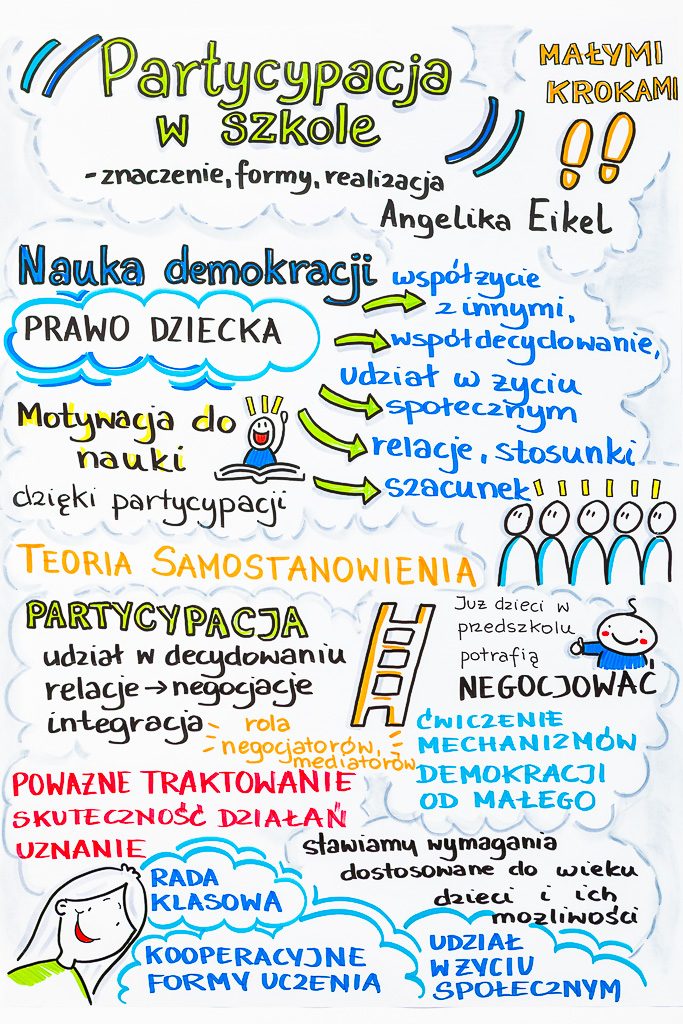 Partycypacja
w szkole
- znaczenie, formy, realizacja
Angelika Eikel
MAŁYMI
KROKAMI
Nauka demokracji
PRAWO DZIECKA
współżycie
z innymi,
współdecydowanie,
udział w życiu
społecznym
relacje, stosunki
szacunek
Motywacja do
nauki
dzięki partycypacji
TEORIA SAMOSTANOWIENIA
PARTYCYPACJA
udział w decydowaniu
relacje → negocjacje
integracja
rola
negocjatorów,
mediatorów
Już dzieci w
przedszkolu
potrafią
NEGOCJOWAĆ
ĆWICZENIE
MECHANIZMÓW
DEMOKRACJI
OD MAŁEGO
POWAŻNE TRAKTOWANIE
SKUTECZNOŚĆ DZIAŁAŃ
UZNANIE
stawiamy wymagania
dostosowane do wieku
dzieci i ich
możliwości
RADA
KLASOWA
KOOPERACYJNE
FORMY UCZENIA
UDZIAŁ
W ŻYCIU
SPOŁECZNYM